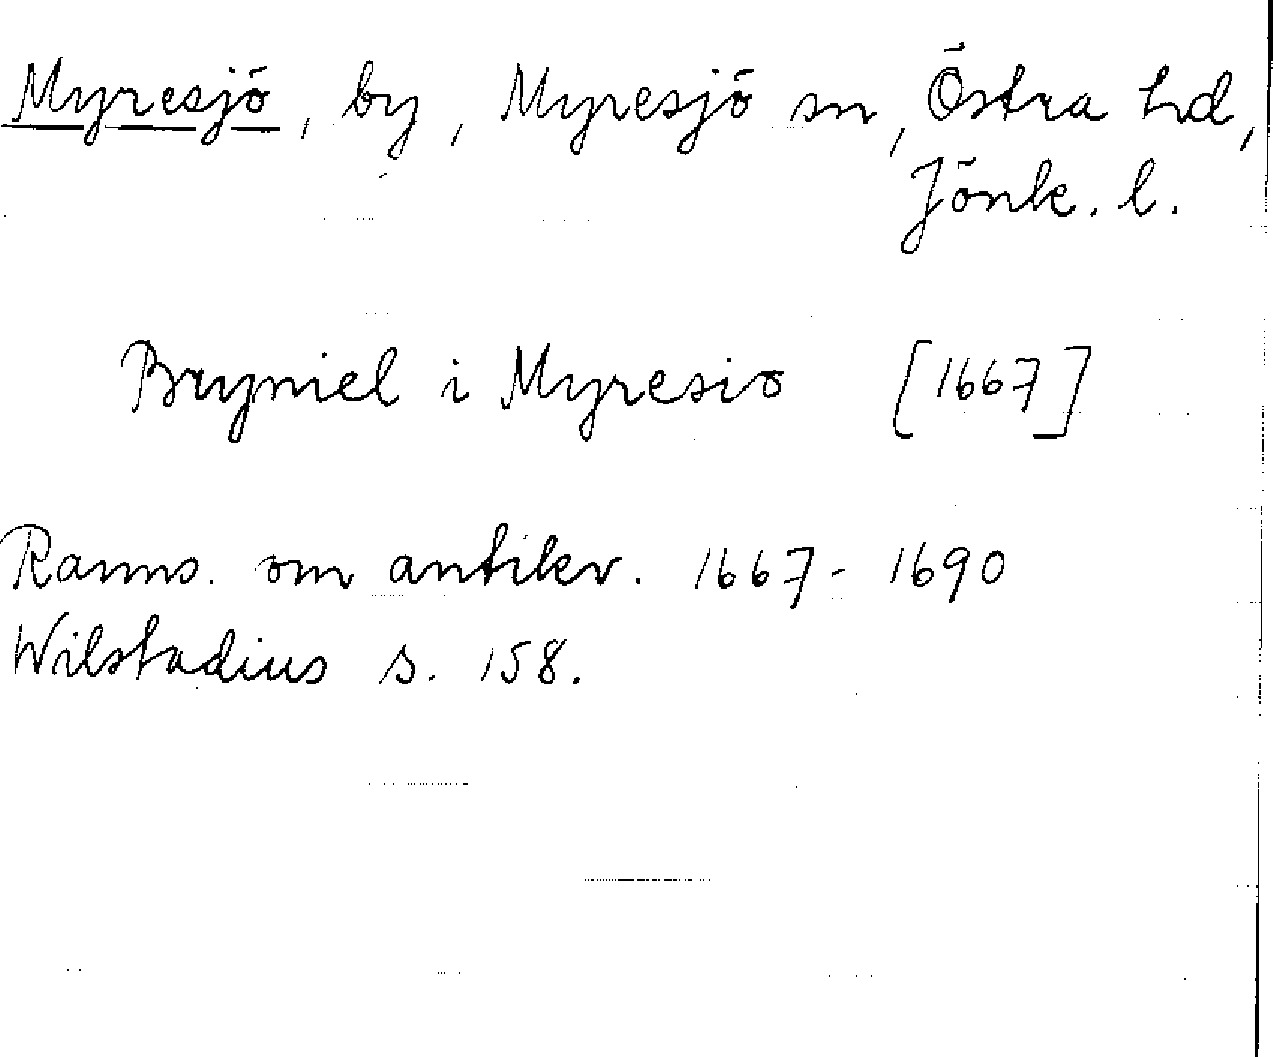 Myresjö, by, Myresjö sn, Östra hd,
Jönk. l.
Bryniel i Myresio [1667]
Ranns. om antikv. 1667-1690
Wilstadius s. 158.